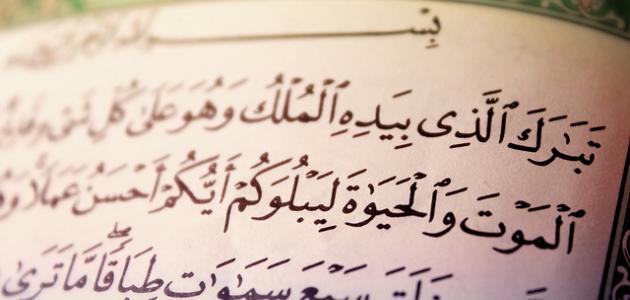 بِسْـ
تَبَٰرَكَ ٱلَّذِى بِيَدِهِ ٱلْمُلْكُ وَهُوَ عَلَىٰ كُلِّ شَىْءٍ
ٱلْمَوْتَ وَٱلْحَيَوٰةَ لِيَبْلُوَكُمْ أَيُّكُمْ أَحْسَنُ عَمَلًا
خَلَقَ سَبْعَ سَمَٰوَٰتٍ طِبَاقًا مَّا تَرَىٰ